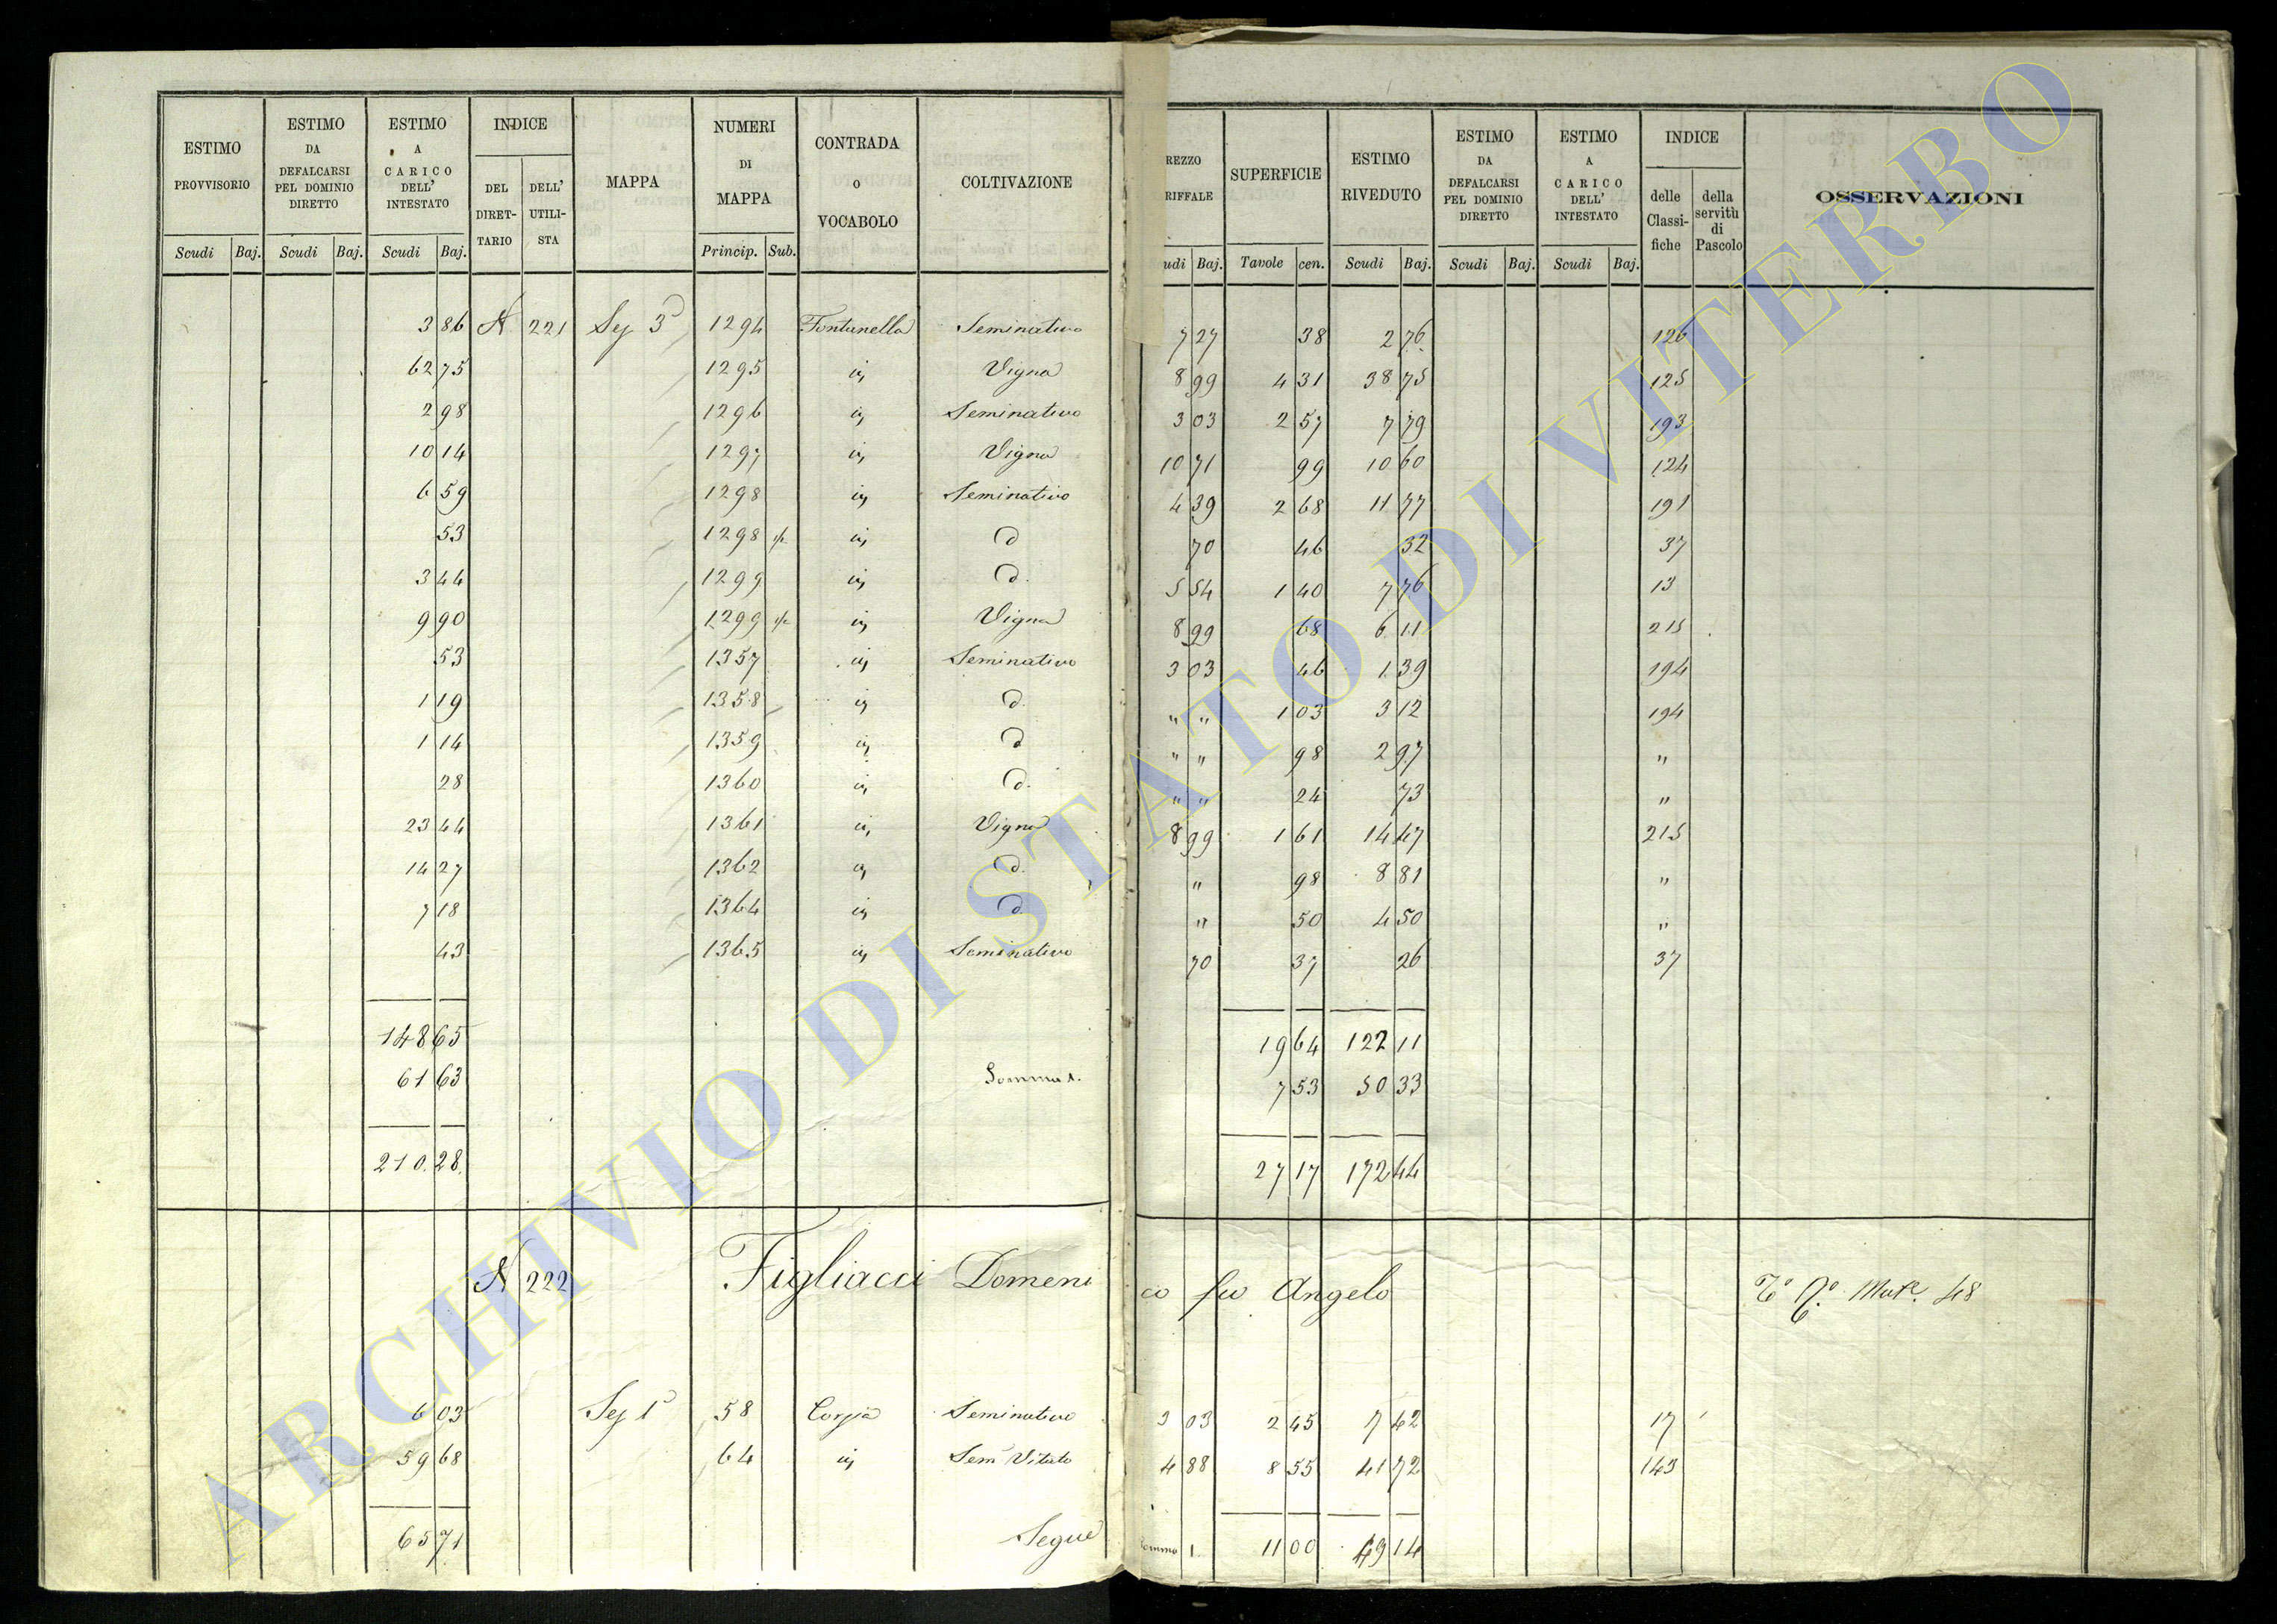 ESTIMO PROVVISORIO
ESTIMO DA DEFALCARSI PEL DOMINIO DIRETTO
ESTIMO A CARICO DELL' INTESTATO
INDICE
DEL DIRET- TARIO
DELL' UTILI- STA
MAPPA
NUMERI DI MAPPA
CONTRADA O VOCABOLO
COLTIVAZIONE
REZZO RIFFALE
SUPERFICIE
ESTIMO RIVEDUTO
ESTIMO DA DEFALCARSI PEL DOMINIO DIRETTO
ESTIMO A CARICO DELL' INTESTATO
INDICE
delle Classi- fiche
della servitù di Pascolo
OSSERVAZIONI
Scudi Baj. Scudi Baj. Scudi Baj. Princip. Sub. udi Baj. Tavole cen. Scudi Baj. Scudi Baj. Scudi Baj.
3 86 N. 221 Sez 3ª 1294 Fontanella Seminativo 7 27 38 2 76 126
62 75 1295 id Vigna 8 99 4 31 38 75 125
2 98 1296 id Seminativo 3 03 2 57 7 79 193
10 14 1297 id Vigna 10 71 99 10 60 124
6 59 1298 id Seminativo 4 39 2 68 11 77 191
53 1298 1/2 id d 70 46 32 37
3 44 1299 id d. 5 54 1 40 7 76 13
9 90 1299 1/2 id Vigna 8 99 68 6 11 215
53 1357 id Seminativo 3 03 46 1 39 194
1 19 1358 id d. " " 1 03 3 12 194
1 14 1359 id d " " 98 2 97 "
28 1360 id d. " " 24 73 "
23 44 1361 id Vigna 8 99 1 61 14 47 215
14 27 1362 id d. " 98 8 81 "
7 18 1364 id d. " 50 4 50 "
43 1365 id Seminativo 70 37 26 37
148 65 19 64 122 11
61 63 Somma 1. 7 53 50 33
210. 28. 27 17 172 44
N 222 Figliacci Domeni co fu Angelo
48
6 03 Sez 1ª 58 Seminativo 3 03 2 45 7 42 17
59 68 64 id Sem Vitato 4 88 8 55 41 72 143
65 71 Segue omma 1. 11 00 49 14
ARCHIVIO DI STATO DI VITERBO